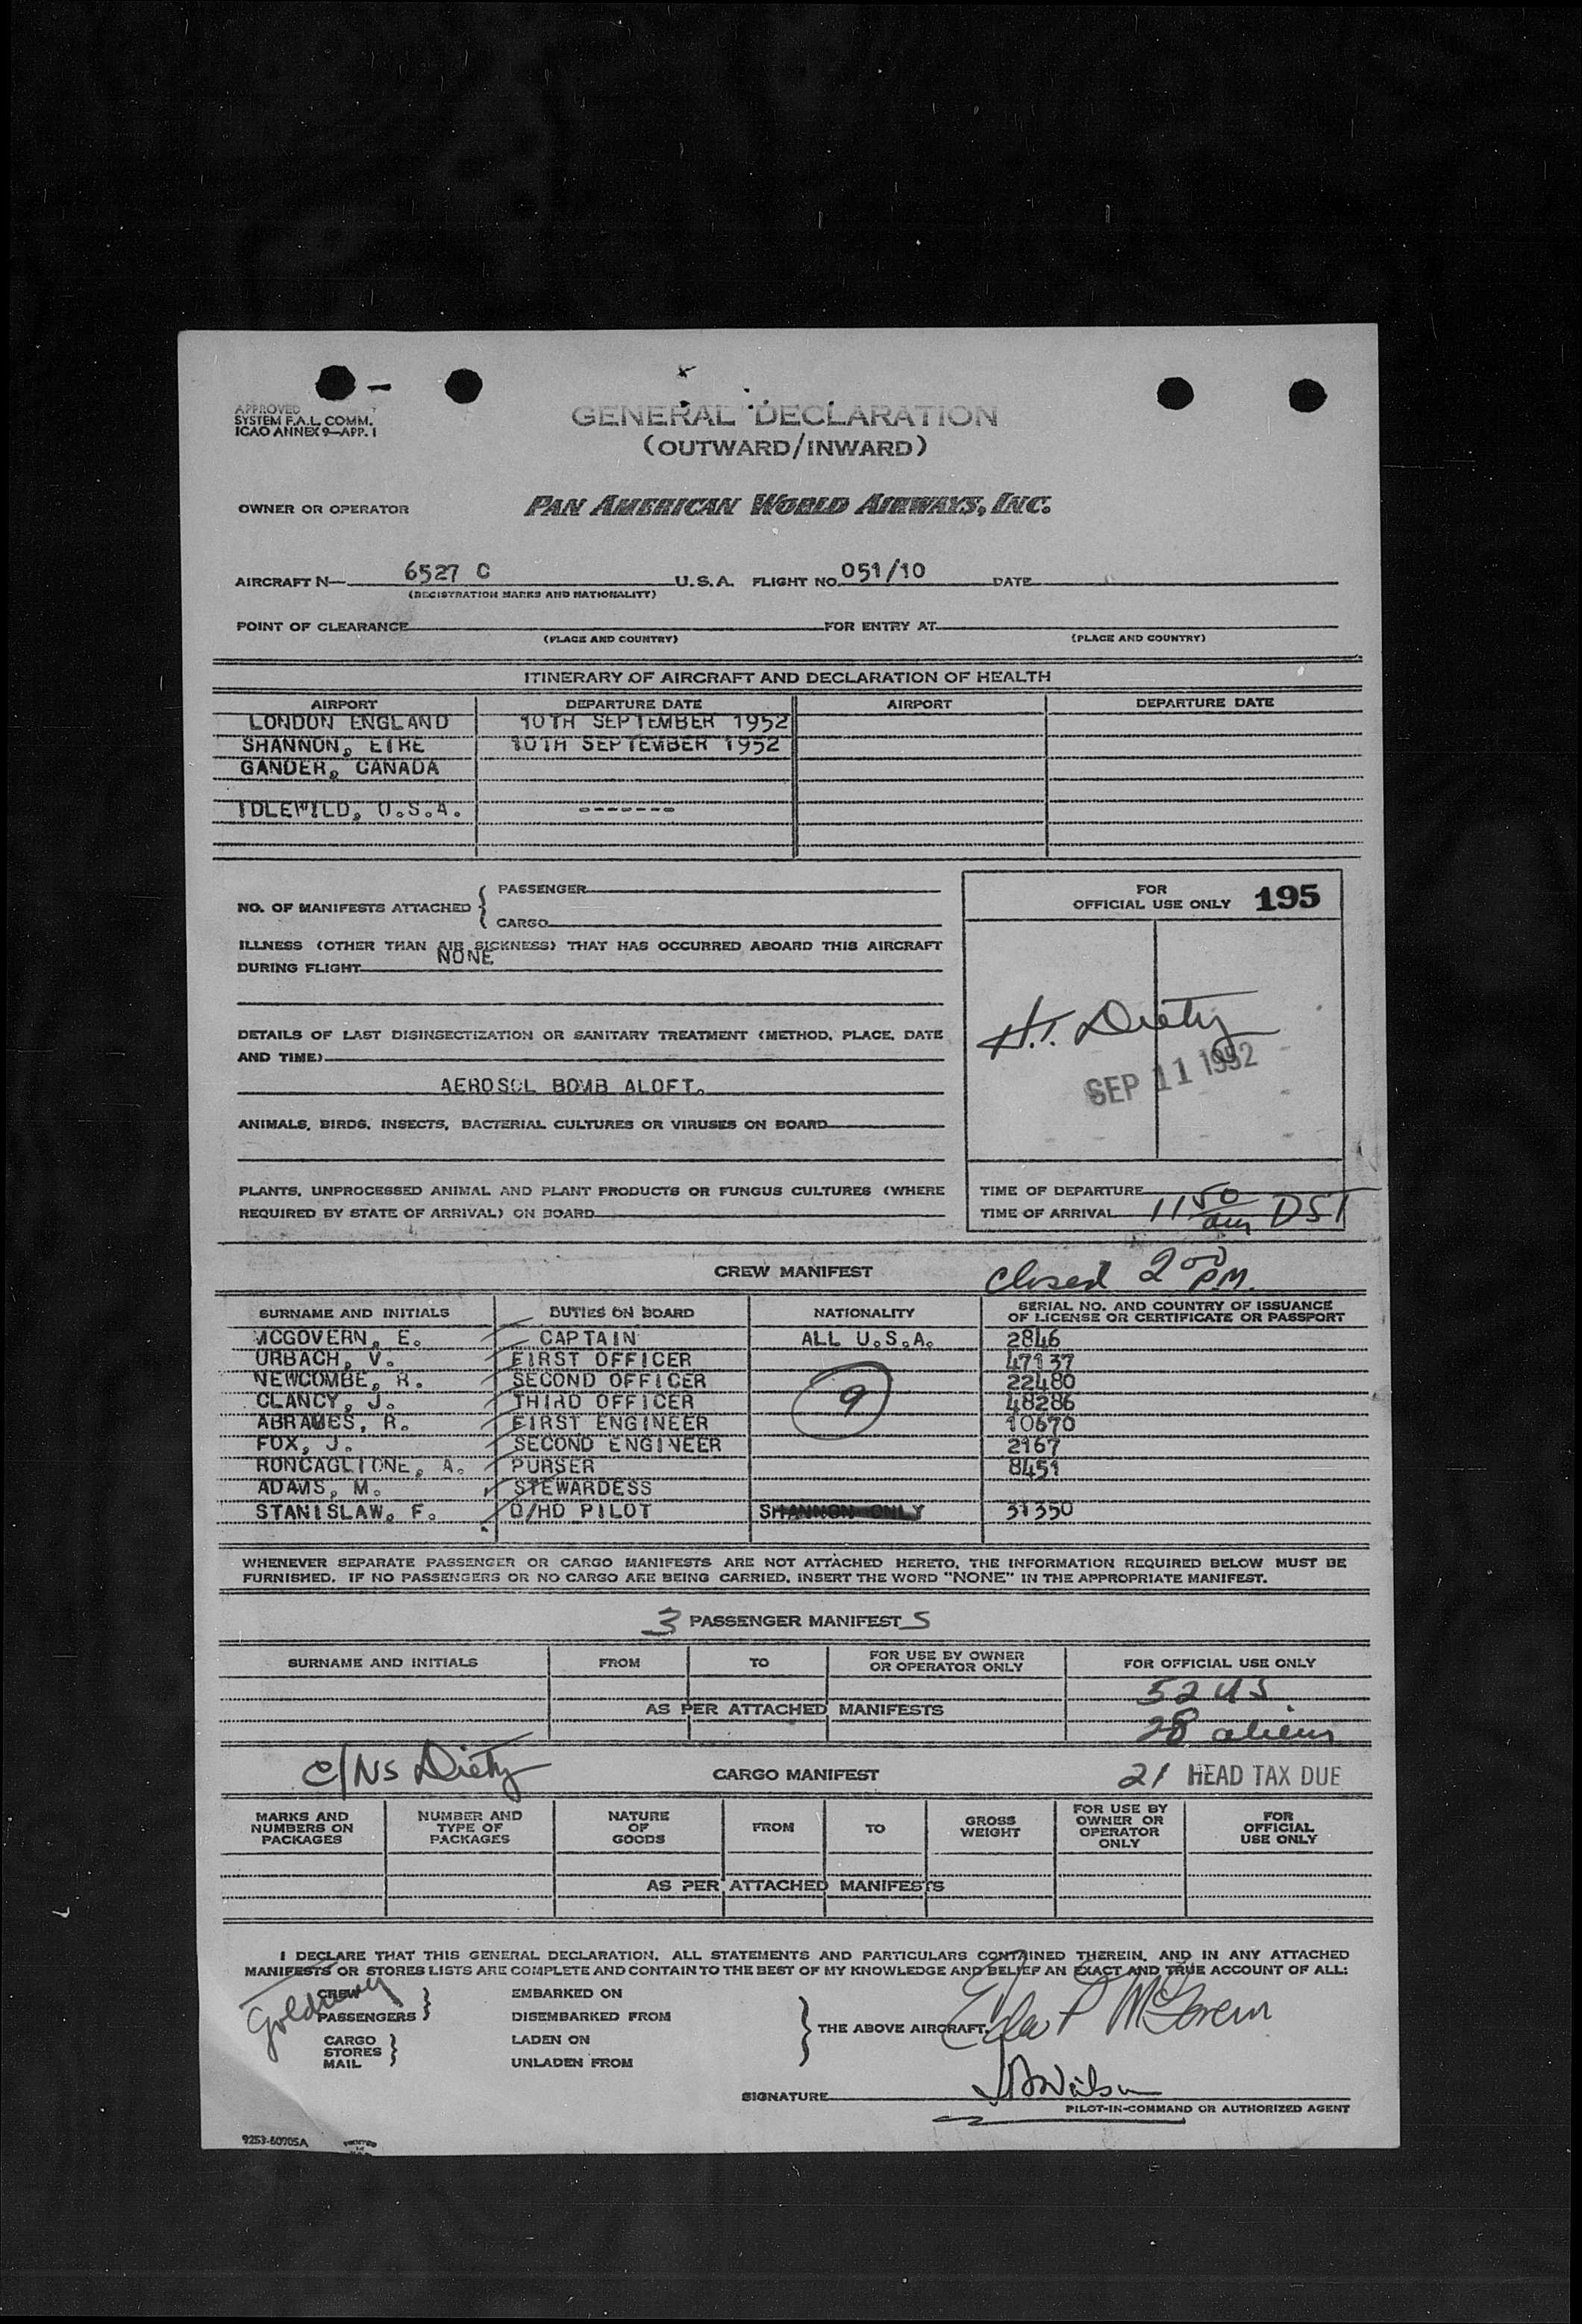 APPROVED
SYSTEM F.A.L. COMM.
ICAO ANNEX 9—APP. I
GENERAL DECLARATION
(OUTWARD/INWARD)
OWNER OR OPERATOR PAN AMERICAN WORLD AIRWAYS, INC.
AIRCRAFT N— 6527 C U.S.A. FLIGHT NO. 051/10 DATE
(REGISTRATION MARKS AND NATIONALITY)
POINT OF CLEARANCE FOR ENTRY AT
(PLACE AND COUNTRY) (PLACE AND COUNTRY)
ITINERARY OF AIRCRAFT AND DECLARATION OF HEALTH
AIRPORT DEPARTURE DATE AIRPORT DEPARTURE DATE
LONDON ENGLAND 10TH SEPTEMBER 1952
SHANNON, EIRE 10TH SEPTEMBER 1952
GANDER, CANADA
IDLEWILD, U.S.A. -------
NO. OF MANIFESTS ATTACHED { PASSENGER
CARGO
FOR
OFFICIAL USE ONLY 195
ILLNESS (OTHER THAN AIR SICKNESS) THAT HAS OCCURRED ABOARD THIS AIRCRAFT
DURING FLIGHT NONE
DETAILS OF LAST DISINSECTIZATION OR SANITARY TREATMENT (METHOD, PLACE, DATE
AND TIME)
AEROSOL BOMB ALOFT.
H.T. Diety
SEP 11 1952
ANIMALS, BIRDS, INSECTS, BACTERIAL CULTURES OR VIRUSES ON BOARD
PLANTS, UNPROCESSED ANIMAL AND PLANT PRODUCTS OR FUNGUS CULTURES (WHERE
REQUIRED BY STATE OF ARRIVAL) ON BOARD
TIME OF DEPARTURE
TIME OF ARRIVAL 11 50 am DST
CREW MANIFEST closed 2 00 P.M.
SURNAME AND INITIALS DUTIES ON BOARD NATIONALITY SERIAL NO. AND COUNTRY OF ISSUANCE
OF LICENSE OR CERTIFICATE OR PASSPORT
MCGOVERN, E. CAPTAIN ALL U.S.A. 2846
URBACH, V. FIRST OFFICER 47137
NEWCOMBE, R. SECOND OFFICER 22480
CLANCY, J. THIRD OFFICER 9 48286
ABRAMES, R. FIRST ENGINEER 10670
FOX, J. SECOND ENGINEER 2167
RONCAGLIONE, A. PURSER 8451
ADAMS, M. STEWARDESS
STANISLAW, F. D/HD PILOT SHANNON ONLY 31350
WHENEVER SEPARATE PASSENGER OR CARGO MANIFESTS ARE NOT ATTACHED HERETO, THE INFORMATION REQUIRED BELOW MUST BE
FURNISHED. IF NO PASSENGERS OR NO CARGO ARE BEING CARRIED, INSERT THE WORD "NONE" IN THE APPROPRIATE MANIFEST.
3 PASSENGER MANIFEST S
SURNAME AND INITIALS FROM TO FOR USE BY OWNER
OR OPERATOR ONLY FOR OFFICIAL USE ONLY
52 US
AS PER ATTACHED MANIFESTS
28 aliens
c/NS Diety CARGO MANIFEST 21 HEAD TAX DUE
MARKS AND
NUMBERS ON
PACKAGES
NUMBER AND
TYPE OF
PACKAGES
NATURE
OF
GOODS
FROM
TO
GROSS
WEIGHT
FOR USE BY
OWNER OR
OPERATOR
ONLY
FOR
OFFICIAL
USE ONLY
AS PER ATTACHED MANIFESTS
I DECLARE THAT THIS GENERAL DECLARATION, ALL STATEMENTS AND PARTICULARS CONTAINED THEREIN, AND IN ANY ATTACHED
MANIFESTS OR STORES LISTS ARE COMPLETE AND CONTAIN TO THE BEST OF MY KNOWLEDGE AND BELIEF AN EXACT AND TRUE ACCOUNT OF ALL:
CREW
PASSENGERS
CARGO
STORES
MAIL
EMBARKED ON
DISEMBARKED FROM
LADEN ON
UNLADEN FROM
THE ABOVE AIRCRAFT.
SIGNATURE
PILOT-IN-COMMAND OR AUTHORIZED AGENT
9253-60705A